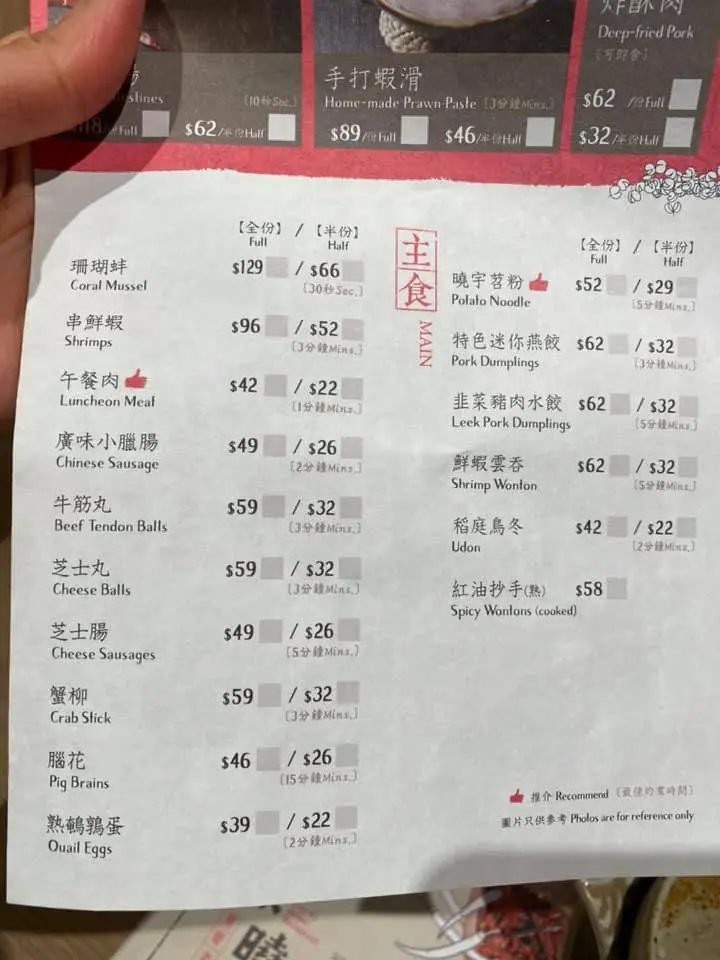 炸酥肉
Deep-fried Pork
〔可即食〕
$62 /份Full
$32/半份Half
〔10秒Sec.〕
$62/半份Half
手打蝦滑
Home-made Prawn Paste 〔3分鐘Mins.〕
$89/份Full $46/半份Half
【全份】 / 【半份】
Full Half
珊瑚蚌 $129 / $66
Coral Mussel 〔30秒Sec.〕
串鮮蝦 $96 / $52
Shrimps 〔3分鐘Mins.〕
午餐肉 $42 / $22
Luncheon Meat 〔1分鐘Mins.〕
廣味小臘腸 $49 / $26
Chinese Sausage 〔2分鐘Mins.〕
牛筋丸 $59 / $32
Beef Tendon Balls 〔3分鐘Mins.〕
芝士丸 $59 / $32
Cheese Balls 〔3分鐘Mins.〕
芝士腸 $49 / $26
Cheese Sausages 〔5分鐘Mins.〕
蟹柳 $59 / $32
Crab Stick 〔3分鐘Mins.〕
腦花 $46 / $26
Pig Brains 〔15分鐘Mins.〕
熟鵪鶉蛋 $39 / $22
Quail Eggs 〔2分鐘Mins.〕
主食
MAIN
【全份】 / 【半份】
Full Half
曉宇苕粉 $52 / $29
Potato Noodle 〔5分鐘Mins.〕
特色迷你燕餃 $62 / $32
Pork Dumplings 〔3分鐘Mins.〕
韭菜豬肉水餃 $62 / $32
Leek Pork Dumplings 〔5分鐘Mins.〕
鮮蝦雲吞 $62 / $32
Shrimp Wonton 〔5分鐘Mins.〕
稻庭烏冬 $42 / $22
Udon 〔2分鐘Mins.〕
紅油抄手(熟) $58
Spicy Wontons (cooked)
推介 Recommend 〔最佳灼煮時間〕
圖片只供參考 Photos are for reference only